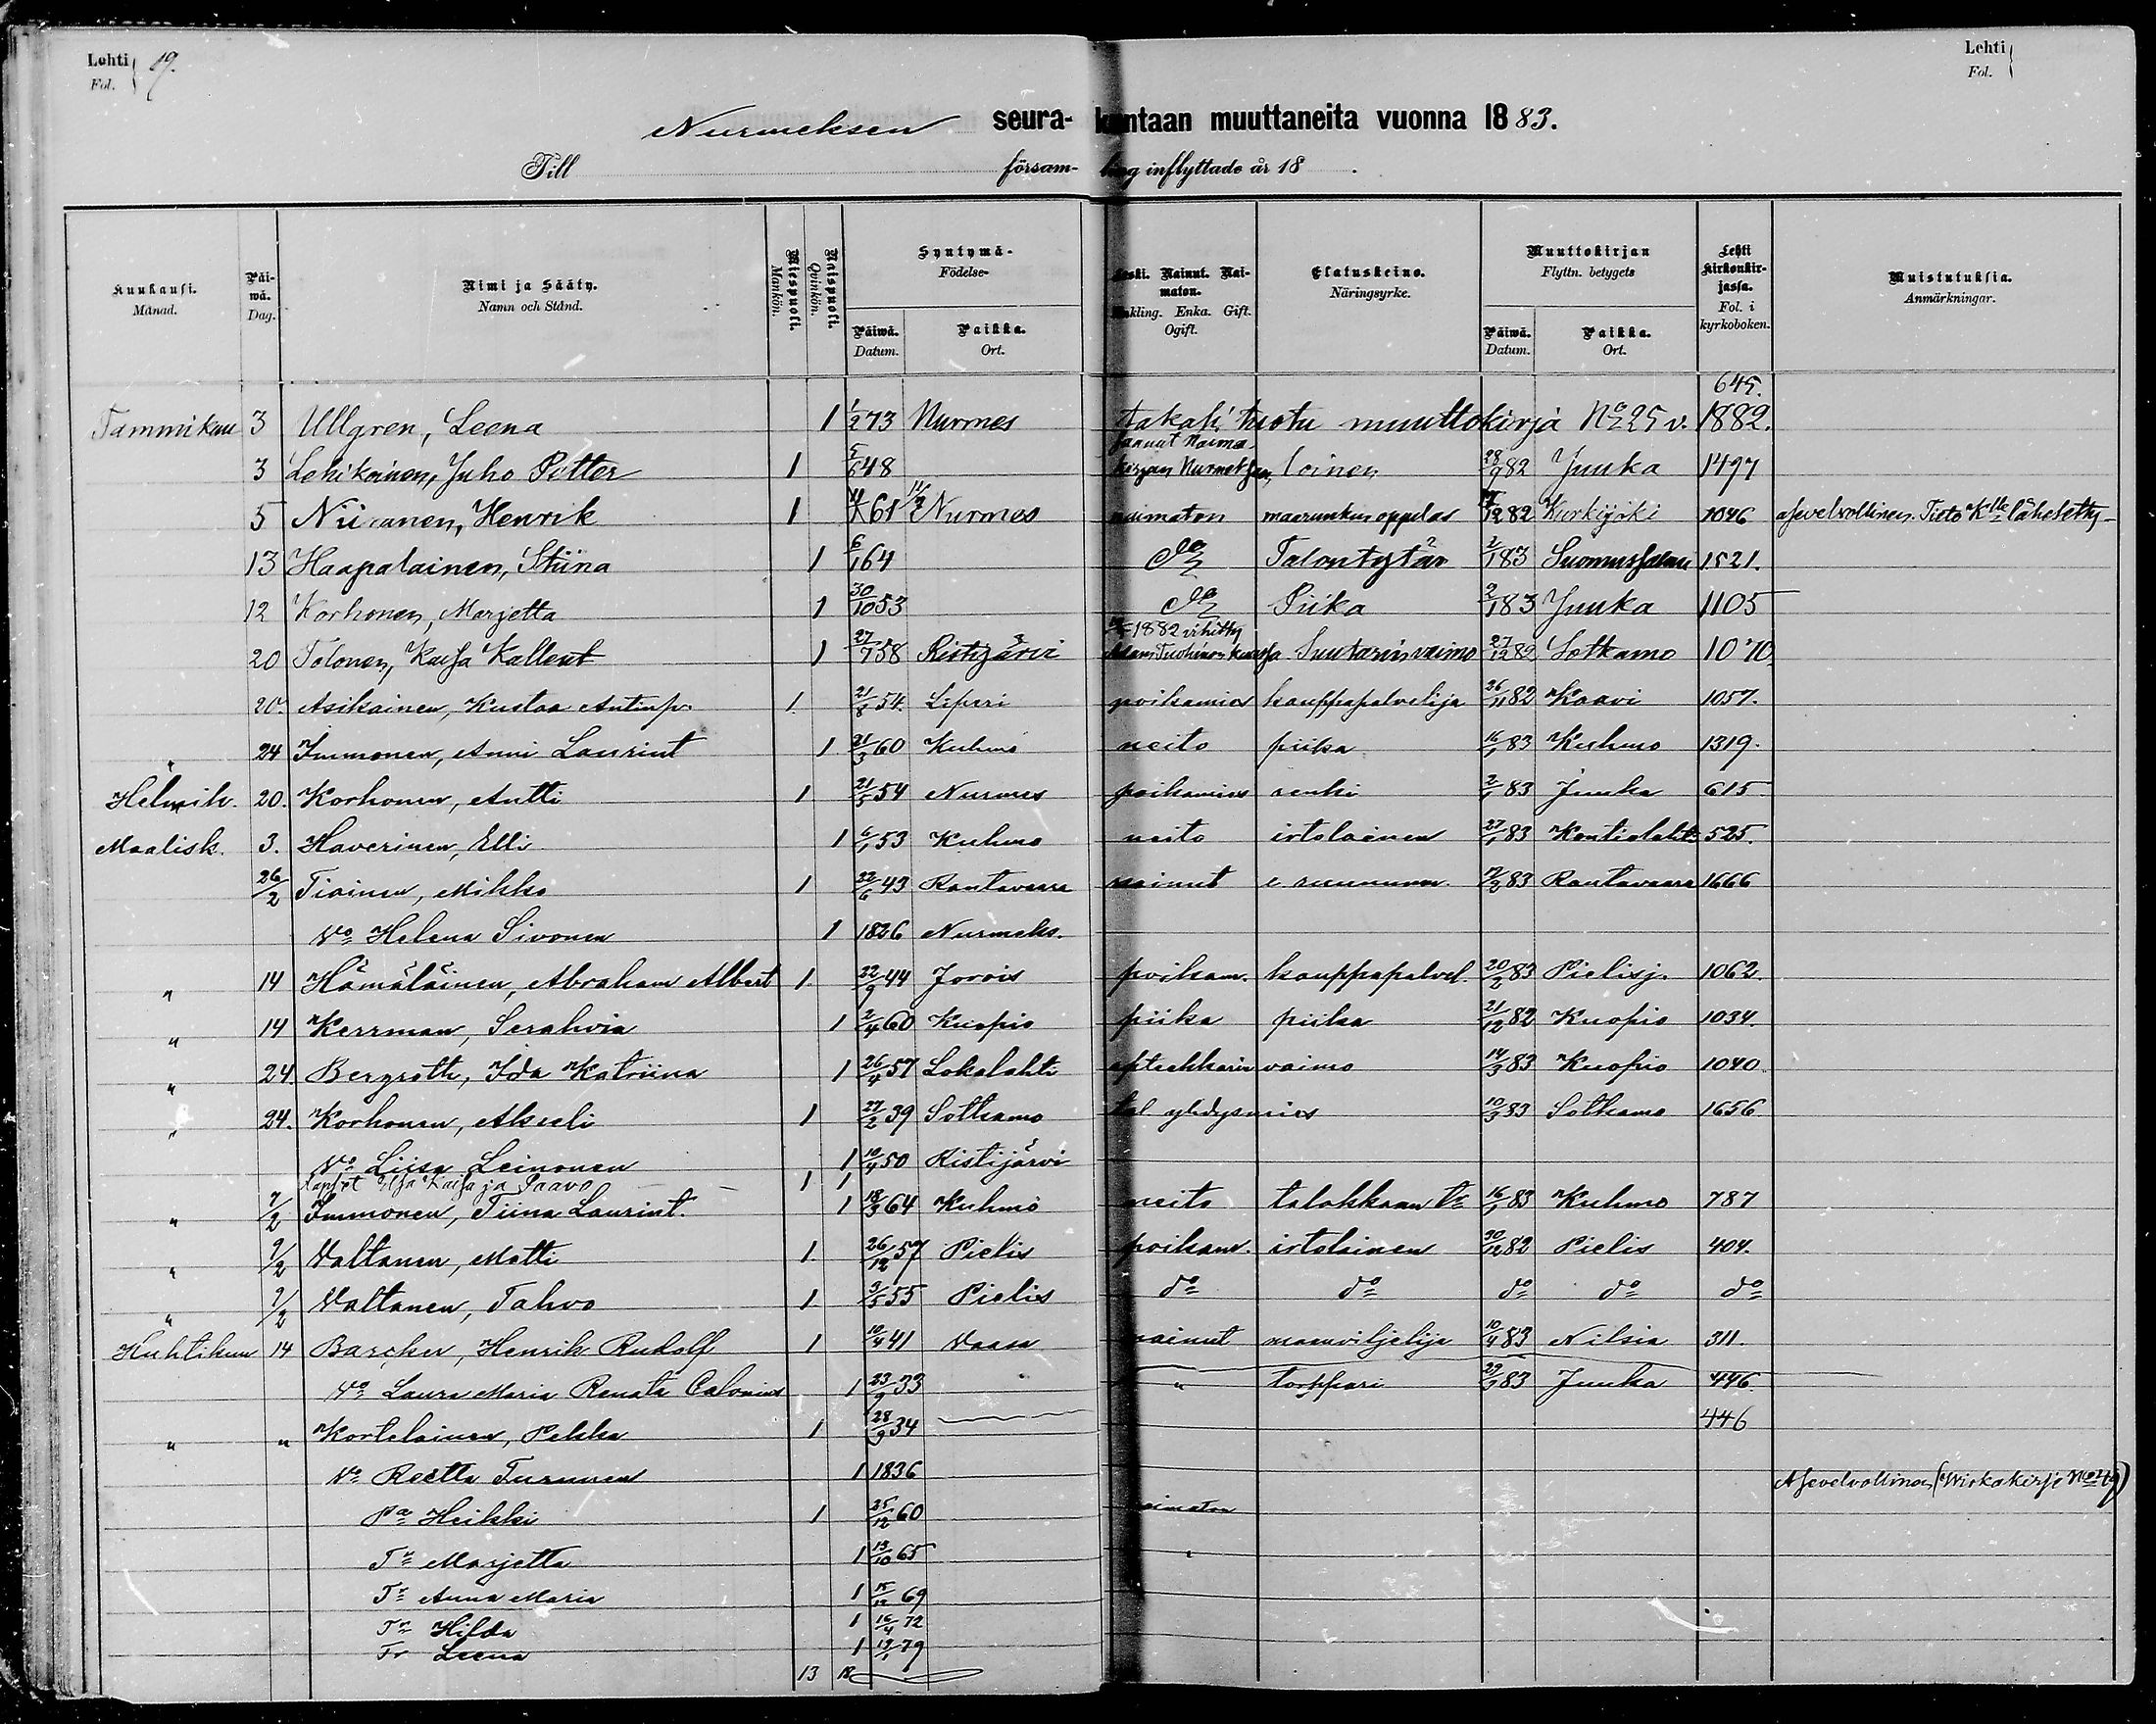 Lehti Fol. 19.
Lehti Fol.
Nurmeksen seura- kuntaan muuttaneita vuonna 1883.
Till försam- ling inflyttade år 18 .
Kuukausi. Månad.
Päi-wä. Dag.
Nimi ja Sääty. Namn och Stånd.
Miespuoli. Mankön.
Naispuoli. Qvinkön.
Syntymä- Födelse-
Päiwä. Datum.
Paikka. Ort.
Leski. Nainut. Nai-maton. Enkling. Enka. Gift. Ogift.
Elatuskeino. Näringsyrke.
Muuttokirjan Flyttn. betygets
Päiwä. Datum.
Paikka. Ort.
Lehti kirkonkir-jassa. Fol. i kyrkoboken.
Muistutuksia. Anmärkningar.
645.
Tammikuu 3 Ullgren, Leena 1 1/2 73 Nurmes takasi tuotu muuttokirja No 25 v. 1882.
3 Lehikoinen, Juho Petter 1 5/6 48 kirjan Nurmeksen, loinen 28/9 82 Juuka 1497
5 Niiranen, Henrik 1 61 Nurmes naimaton 12 82 Kurkijoki 1046 asevelvollinen. Tieto lähetetty
13 Haapalainen, Stiina 1 6/1 64 Talontytär 2/1 83 Suomussalmi 1521.
12 Korhonen, Marjetta 1 30/10 53 Piika 2/1 83 Juuka 1105
1882 vihitty
20 Tolonen, Kaisa Kallent 1 27/7 58 Ristijärvi Tuohinon kanssa Suutarin vaimo 27/12 82 Sotkamo 1070
20. Asikainen, Kustaa Antinp. 1. 21/8 54. Liperi poikamies kauppapalvelija 26/11 82 Kaavi 1057.
" 24 Immonen, Anni Laurint 1 21/3 60 Kuhmo neito piika 16/1 83 Kuhmo 1319.
Helmik. 20. Korhonen, Antti 1 21/5 54 Nurmes poikamies renki 2/1 83 Juuka 615.
Maalisk. 3. Haverinen, Elli 1 6/1 53 Kuhmo neito irtolainen 27/1 83 Kontiolaht. 525.
26/2 Tiainen, Mikko 1 22/6 43 Rautavaara nainut 7/2 83 Rautavaara 1666
Vo Helena Sivonen 1 1826 Nurmeks.
" 14 Hämäläinen, Abraham Albert 1. 22/9 44 Jorois poikam. kauppapalvel. 20/2 83 Pielisj. 1062.
" 14 Kerrman, Serahvia 1 2/4 60 Kuopio piika piika 21/12 82 Kuopio 1034.
" 24. Bergroth, Ida Katriina 1 26/4 57 Lokalahti apteekkarin vaimo 14/3 83 Kuopio 1040.
" 24. Korhonen, Akseli 1 27/2 39 Sotkamo tal. yhdysmies 10/3 83 Sotkamo 1656
Vo Liisa Leinonen 1 10/4 50 Ristijärvi
Lapset Kaisa ja Paavo 1 1
" 7/2 Immonen, Tiina Laurint. 1 18/3 64 Kuhmo neito talokkaan tr 16/1 83 Kuhmo 787
" 9/2 Valtanen, Matti 1. 26/12 57 Pielis poikam. irtolainen 30/12 82 Pielis 404.
" 9/2 Valtanen, Tahvo 1. 3/5 55 Pielis do do do do do
Huhtikuu 14 Barcker, Henrik Rudolf 1 10/4 41 Vaasa nainut maanviljelijä 10/4 83 Nilsiä 311.
Vo Laura Maria Renata Calonius 1 23/9 33 " torppari 29/3 83 Juuka 446.
" " Kortelainen, Pekka 1 28/9 34 446
Vo Reetta Turunen 1 1836
Asevelvollinen (Wirkakirje No 49)
Pa Heikki 1 25/12 60 naimaton
Tr Marjetta 1 13/10 65 "
Tr Anna Maria 1 15/12 69
Tr Hilda 1 16/4 72
Tr Leena 1 19/1 79
13 18